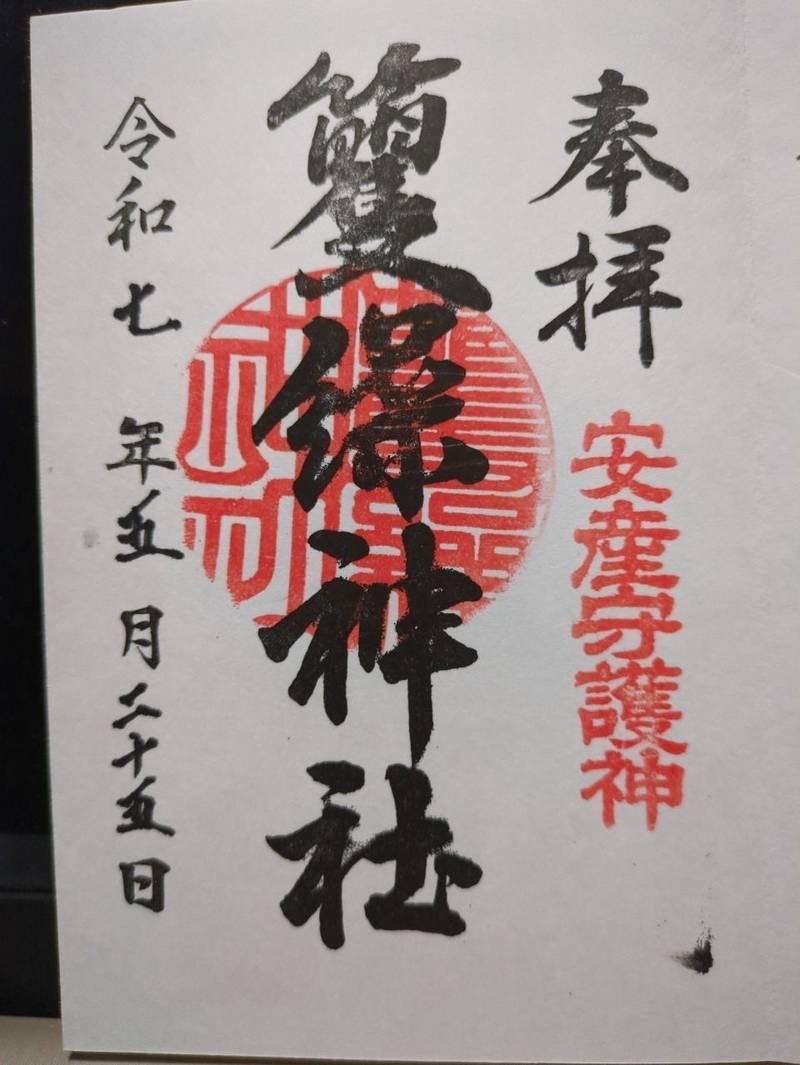 奉拝
安産守護神
神社
令和七年五月二十五日